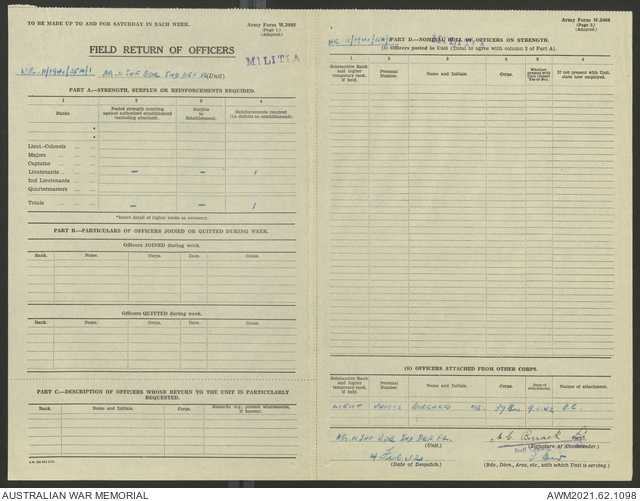 TO BE MADE UP TO AND FOR SATURDAY IN EACH WEEK.
Army Form W.3008
(Page 1.)
(Adapted.)
FIELD RETURN OF OFFICERS
MILITIA
(Unit)
PART A.—STRENGTH, SURPLUS OR REINFORCEMENTS REQUIRED.
1 2 3 4
Ranks. Posted strength counting against authorised establishment (excluding attached). Surplus to Establishment. Reinforcements required (i.e. deficits on establishment).
*
*
Lieut.-Colonels
Majors
Captains
Lieutenants – – 1
2nd Lieutenants
Quartermasters
Totals – – 1
*Insert detail of higher ranks as necessary.
PART B.—PARTICULARS OF OFFICERS JOINED OR QUITTED DURING WEEK.
Officers JOINED during week.
Rank. Name. Corps. Date. Cause.
Officers QUITTED during week.
Rank. Name. Corps. Date. Cause.
PART C.—DESCRIPTION OF OFFICERS WHOSE RETURN TO THE UNIT IS PARTICULARLY REQUESTED.
Rank. Name and Initials. Corps. Remarks (e.g., present whereabouts, if known).
Army Form W.3008
(Page 2.)
(Adapted).
PART D.—NOMINAL ROLL OF OFFICERS ON STRENGTH.
(i) Officers posted to Unit (Total to agree with column 2 of Part A).
1 2 3 4 5 6
Substantive Rank and higher temporary rank, if held. Personal Number. Name and Initials. Corps. Whether present with Unit (Insert Yes or No). If not present with Unit, state how employed.
(ii) OFFICERS ATTACHED FROM OTHER CORPS.
Substantive Rank and higher temporary rank, if held. Personal Number. Name and Initials. Corps. Date of attachment. Nature of attachment.
Lieut
(Unit.) (Signature of Commander)
4 Feb 42
(Date of Despatch.) (Bde., Divn., Area, etc., with which Unit is serving.)
AUSTRALIAN WAR MEMORIAL
AWM2021.62.1.1098